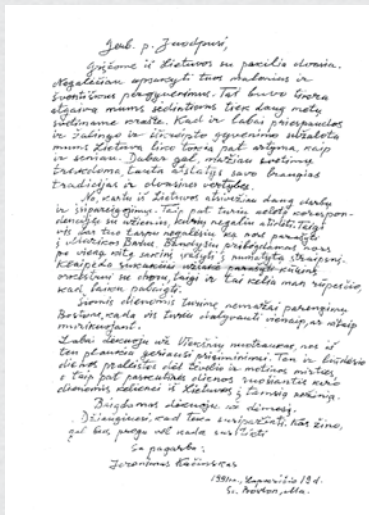 Gerb. p. Juodpusi,
Grįžome iš Lietuvos su pakilia dvasia.
Negalėčiau apsakyti tuos malonius ir
šventiškus pergyvenimus. Tai buvo tikra
atgaiva mums sėdintiems tiek daug metų
svetimame krašte. Kad ir labai priespaudos
ir žalingo ir iškreipto gyvenimo sužalota
mums Lietuva liko tokia pat artima, kaip
ir seniau. Dabar gal, mažiau svetimų
trukdoma, tauta atstatys savo brangias
tradicijas ir dvasines vertybes.
Na, kartu iš Lietuvos atsivežiau daug darbų
ir įsipareigojimų. Taip pat turiu aibę korespon-
dencijos su užsieniu, kurių negaliu atidėti. Taigi
vis dar tuo tarpu negalėsiu ką nors parašyti
į Muzikos Barus. Bandysiu pribėgdamas nors
po vieną kitą sakinį įrašyti į numatytą straipsnį.
Klaipėda kūrinį
orkestrui su choru, taigi ir tai kelia man rūpesčio,
kad laiku pabaigti.
Šiomis dienomis turime nemažai parengimų
Bostone, kada vis turiu dalyvauti vienaip, ar kitaip
muzikuojant.
Labai dėkoju už Viekšnių nuotraukas, nes iš
ten plaukia geriausi prisiminimai. Ten ir liūdėsio
dienos praleistos dėl tėvelio ir motinos mirties,
o taip pat paskutinės dienos ruošiantis karo
dienomis kelionei iš Lietuvos į tamsią nežinią.
Baigdamas dėkoju už dėmesį.
Džiaugiuosi, kad teko susipažinti. Kas žino,
gal bus proga vėl kada susitikti
Su pagarba:
Jeronimas Kačinskas
1991 m., Lapkričio 19 d.
So. Boston, Ma.